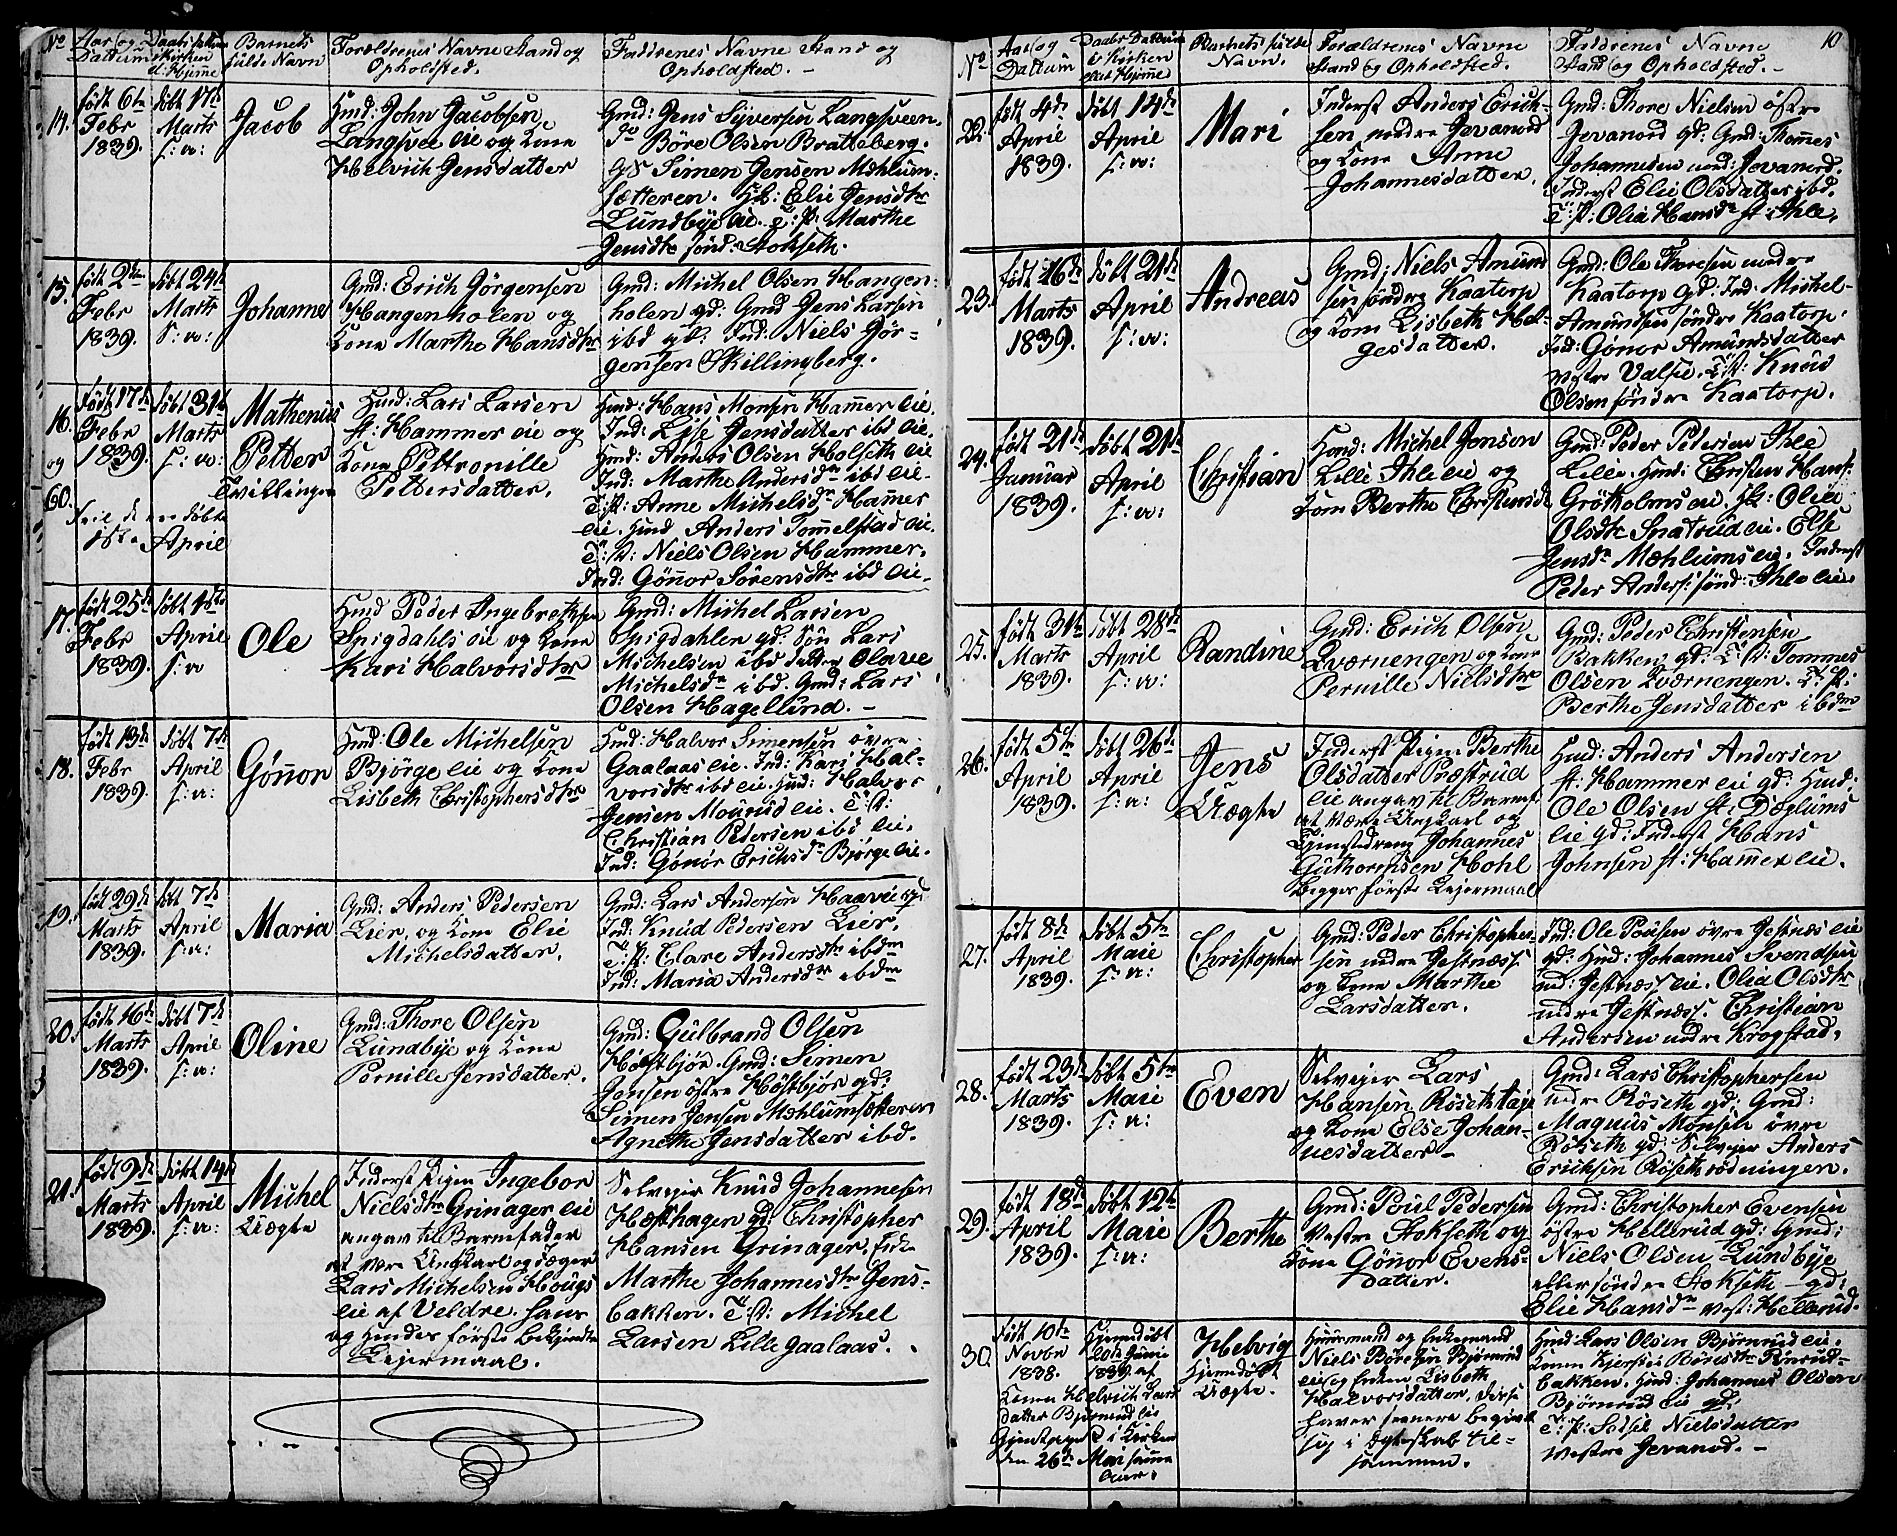 No Aar og Datum
Barnets fulde Navn
Forældrenes Navne Stand og Opholdsted.
Faddrenes Navne Stand og Opholdsted. –
14. født 6te Febr 1839. døbt 17de Marts s: a:
Jacob
Hmd: John Jacobsen
Langsvee eie og Kone
Helvich Jensdatter
Gmd: Jens Syversen Langsveen.
do Børe Olsen Bratteberg.
Simen Jensen Mæhlum-
sætteren. Elie Jensdtr
Lundbye eie. T: P: Marthe
Jensdtr sønd: Stokseth.
15. født 2den Febr 1839. døbt 24de Marts s: a:
Johanne
Gmd: Erich Jørgensen
Hangenholen og
Kone Marthe Hansdtr
Gmd: Michel Olsen Hangen-
holen gd: Gmd Jens Larsen
ibd gd: Ind: Niels Jør-
gensen Skillingberg.
16. og født 17de Febr 1839. døbt 31te Marts s: a:
Mathenius
Petter
Tvillinger
Hmd: Lars Larsen
st: Hammer eie og
Kone Pettronille
Pettersdatter.
Hmd: Hans Monsen Hammer eie.
Ind: Lise Jensdatter ibd eie.
Hmd: Anders Olsen Holseth eie
Ind: Marthe Andersdr ibd eie.
T: P: Anne Michelsdr Hammer
eie. Hmd Anders Tommelstad eie.
T: P: Niels Olsen Hammer.
Ind: Gønnor Sørensdtr ibd eie.
17. født 25de Febr 1839. døbt April s: a
Ole
Hmd Peder Ingebrethsen
Spigdahls eie og Kone
Kari Halvorsdtr
Gmd: Michel Larsen
Spigdahlen gd. Søn Lars
Michelsen ibd Olave
Michelsdr ibd. Gmd: Lars
Olsen Hagellund. –
18. født 13de Febr 1839. døbt 7de April s: a:
Gønnor
Hmd: Ole Michelsen
Bjørge eie og Kone
Lisbeth Christophersdtr
Hmd: Halvor Simensen øvre
Gaalaas eie. Ind: Kari Hal-
vorsdtr ibd eie. Hmd: Halvor
Jensen eie. T: P:
Christian Pedersen ibd eie.
Ind: Gønor Erichsdr Bjørge eie.
19. født 29de Marts 1839. døbt 7de April s: a:
Maria
Gmd: Anders Pedersen
Lier, og Kone Elie
Michelsdatter.
Gmd: Lars Andersøn Haavie gd:
Ind: Knud Pedersen Lier,
T: P: Clare Andersdtr ibdm
Ind: Maria Andersdr ibdm
20. født 16de Marts 1839. døbt 7de April s: a:
Oline
Gmd: Thore Olsen
Lundbye og Kone
Pernille Jensdatter.
Gmd: Gulbrand Olsen
Høstbjør. Gmd: Simen
Jensen østre Høstbjør gd:
Simen Jensen Mæhlumsetteren
Agnethe Jensdatter ibd.
21. født 9de Marts 1839. døbt 14de April s: a:
Michel
Uægte
Inderst Pigen Ingebor
Nielsdtr Grinager eie
angav til Barnefader
at være Ungkarl og Jæger
Lars Michelsen Hougs
eie af Veldre. Hans
og hendes første bekjendte
Leiermaal.
Selveier Knud Johannesen
Hæsthagen gd: Christopher
Hansen Grinager, Enke
Marthe Johannesdtr Jens-
bakken. T: P: Michel
Larsen Lille Gaalaas.
10
No Aar og Datum
Daabs Datum i Kirken eller Hjeme
Barnets fulde Navn.
Forældrenes Navne
Stand og Opholdsted.
Faddrenes Navne
Stand og Opholdsted. –
22. født 4de April 1839. døbt 14de April s: a:
Mari
Inderst Anders Erich-
sen nedre Jevanord
og Kone Anne
Johannesdatter.
Gmd: Thore Nielsen østre
Jevanord gd: Gmd: Thommes
Johannesen ned: Jevanord.
Inderst Elie Olsdatter ibd.
T: P: Olia Hansdr st: Ihle.
23. født 16de Marts 1839. døbt 21de April s: a:
Andreas
Gmd: Niels Amund
sen søndre Kaatorp
og Kone Lisbeth Hel-
gesdatter.
Gmd: Ole Thoresen nedre
Kaatorp gd: Ind: Michel
Amundsen søndre Kaatorp.
Ind: Gønor Amundsdatter
vestre Valsee. T: P: Knud
Olsen søndre Kaatorp.
24. født 21de Januar 1839. døbt 21de April s: a:
Christian
Hmd: Michel Jensen
Lille Ihle eie og
Kone Berthe Christensdr
Gmd: Peder Pedersen Ihle
Lille. Hmd: Christen Hans:
Grøtholms eie Olia
Olsdtr Snatrud eie. Else
Jensdr Mæhlums eie. Inderst
Peder Anders: sønd: Ihle eie.
25. født 31te Marts 1839. døbt 28de April s: a:
Randine
Gmd: Erich Olsen
Qværnengen og Kone
Pernille Nielsdtr
Gmd: Peder Christensen
Bakken gd: T: P: Tommes
Olsen Qværnengen. T: P:
Berthe Jensdatter ibdm
26. født 5te April 1839. døbt 26de April s: a:
Jens
Uægte
Inderst Pigen Berthe
Olsdatter Præstrud
eie angav til Barnef.
at være Ungkarl og
Tjenestedreng Johannes
Guthormsen Hohl
begges første Leiermaal
Hmd: Anders Andersen
st: Hammer eie gd: Hmd:
Ole Olsen st: Dæglums
eie gd: Inderst Hans
Johnsen st: Hammer eie.
27. født 8de April 1839. døbt 5te Maie s: a:
Christopher
Gmd: Peder Christopher-
sen nedre Jestnæss
og Kone Marthe
Larsdatter.
Ind: Ole Poulsen øvre Jestnæs eie
gd: Hmd: Johannes Svendsen
ned: Jestnæss eie. Olia Olsdtr
nedre Jestnæss. Christian
Andersen nedre Krogstad.
28. født 23de Marts 1839. døbt 5te Maie s: a:
Even
Selveier Lars
Hansen Røseth
og Kone Else Johan-
nesdatter –
Gmd: Lars Christophersen
nedre Røseth gd: Gmd:
Magnus Monsen øvre
Røseth gd: Selveier Anders
Ericksen Røsethrødningen.
29. født 18de April 1839. døbt 12te Maie s: a:
Berthe
Gmd: Poul Pedersen
vestre Stokseth og
Kone Gønor Evens-
datter.
Gmd: Christopher Evensen
østre Hellerud gd: Gmd:
Niels Olsen Lundbye
eller søndre Stokseth – gd:
Elie Hansdr vest: Hellerud.
30. født 10de Novbr 1838. Hjemedøbt
1839. af
Konen Helvich Lars
datter Bjørnerud eie
i Kirken
den 26de Mai samme
Aar.
Helvig
Hjemedøbt
Uægte.
Huusmand og Enkemand
Niels Børesen Bjørnerud
eie og Enken Lisbeth
Halvorsdatter, disse
haver senere begivet
sig i Ægteskab til-
sammen.
Hmd: Lars Olsen Bjørnerud eie.
Konen Kjersti Børesdtr
bakken. Hmd: Johannes Olsen
Bjørnerud eie gd:
T: P: Sidsel Nielsdatter
vestre Jevanord. –